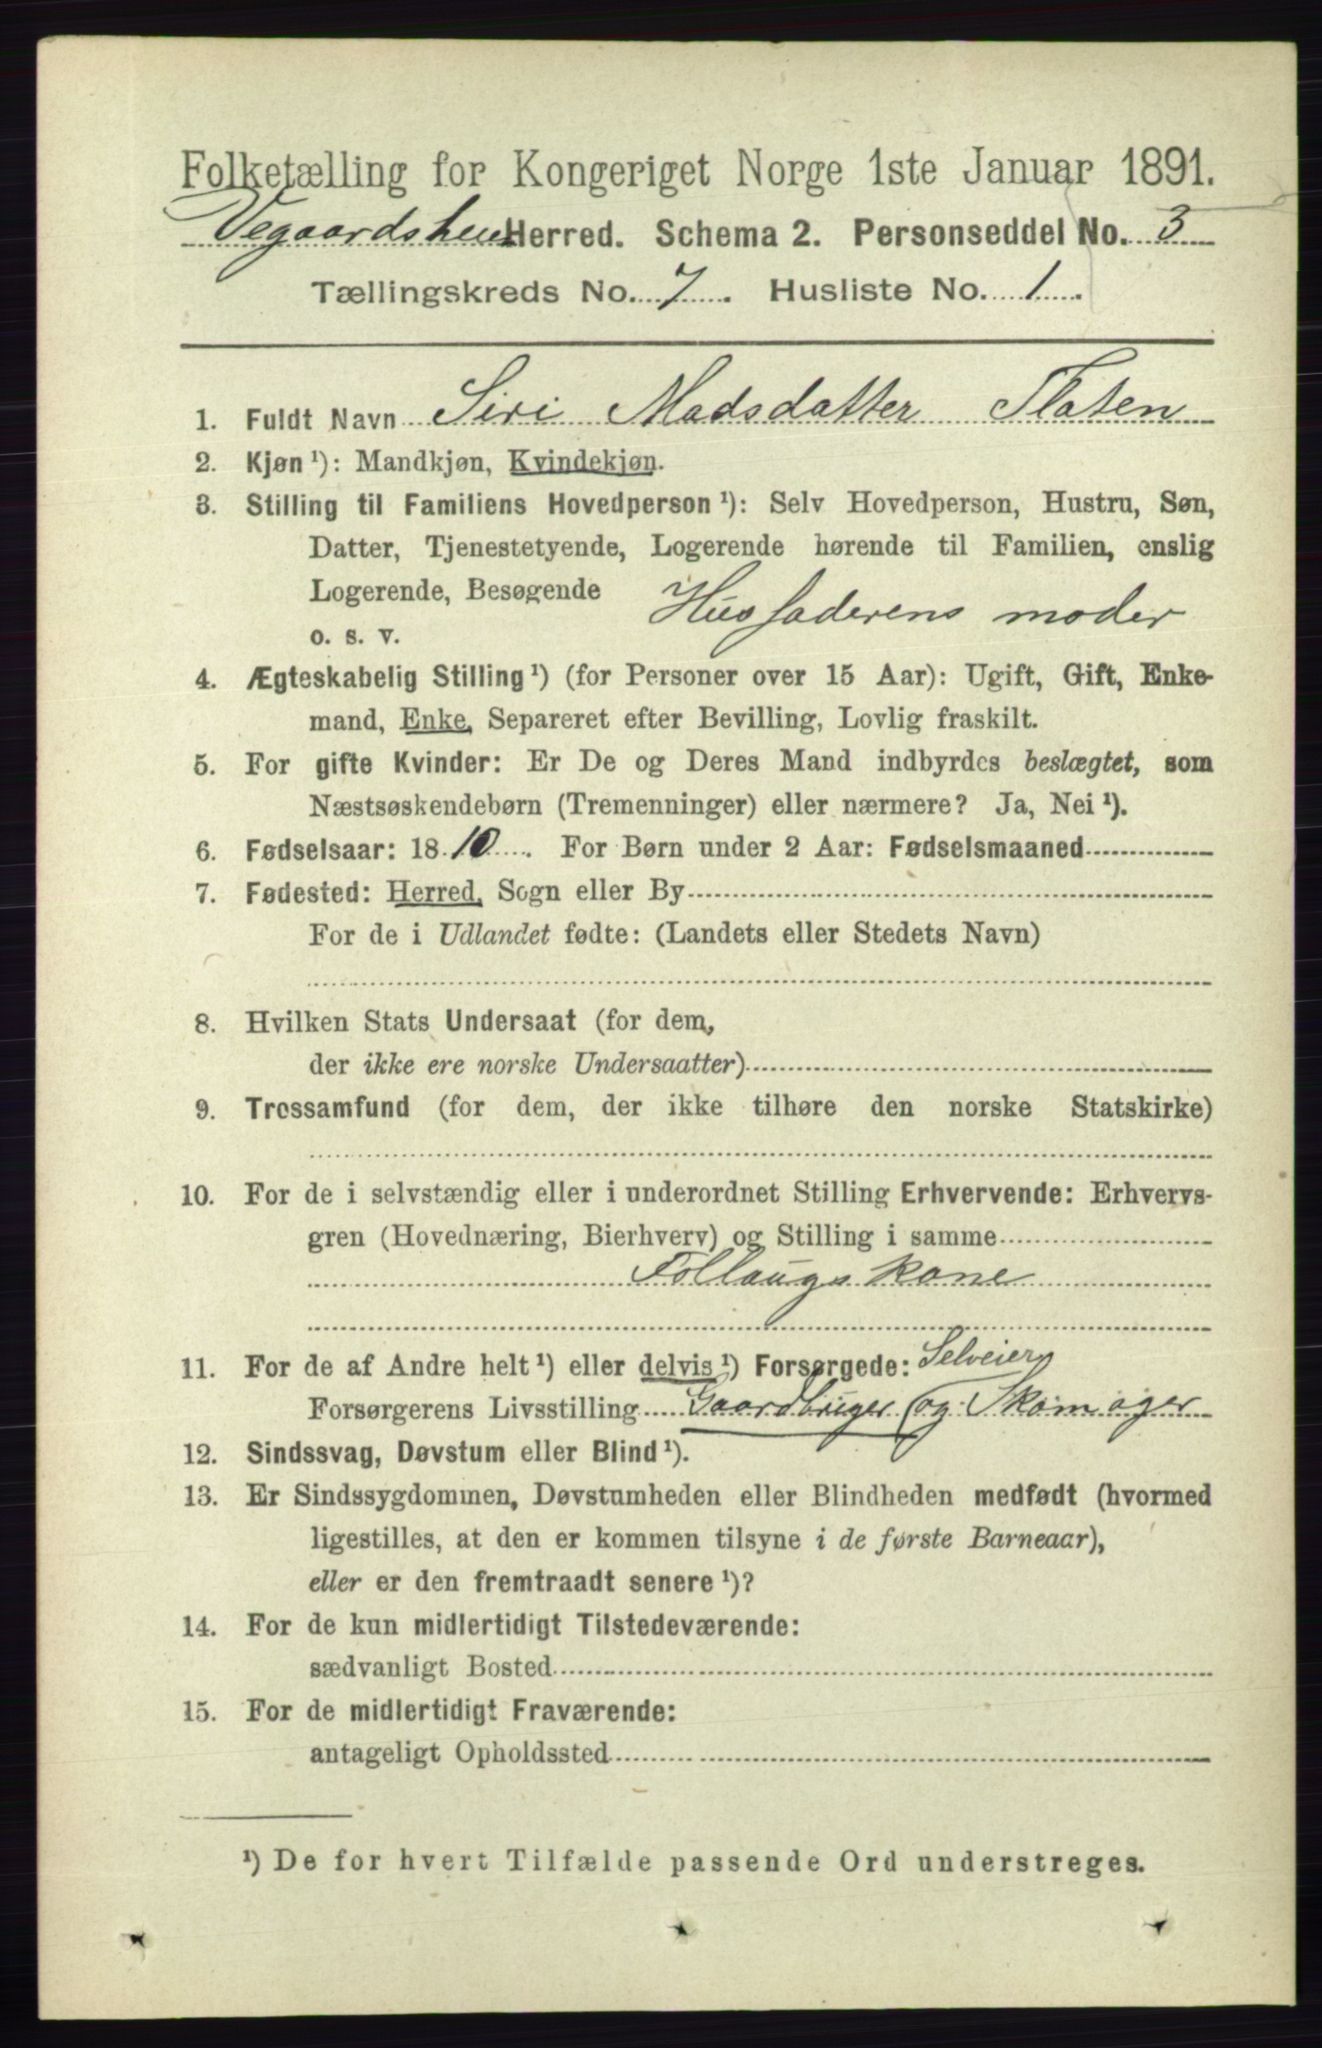 Folketælling for Kongeriget Norge 1ste Januar 1891.
Vegaardsheis Herred. Schema 2. Personseddel No. 3
Tællingskreds No. 7. Husliste No. 1.
1. Fuldt Navn Siri Madsdatter Flaten
2. Kjøn ¹): Mandkjøn, Kvindekjøn.
3. Stilling til Familiens Hovedperson ¹): Selv Hovedperson, Hustru, Søn,
Datter, Tjenestetyende, Logerende hørende til Familien, enslig
Logerende, Besøgende Husfaderens moder
o. s. v.
4. Ægteskabelig Stilling ¹) (for Personer over 15 Aar): Ugift, Gift, Enke-
mand, Enke, Separeret efter Bevilling, Lovlig fraskilt.
5. For gifte Kvinder: Er De og Deres Mand indbyrdes beslægtet, som
Næstsøskendebørn (Tremenninger) eller nærmere? Ja, Nei ¹).
6. Fødselsaar: 1810. For Børn under 2 Aar: Fødselsmaaned
7. Fødested: Herred, Sogn eller By
For de i Udlandet fødte: (Landets eller Stedets Navn)
8. Hvilken Stats Undersaat (for dem,
der ikke ere norske Undersaatter)
9. Trossamfund (for dem, der ikke tilhøre den norske Statskirke)
10. For de i selvstændig eller i underordnet Stilling Erhvervende: Erhvervs-
gren (Hovednæring, Bierhverv) og Stilling i samme
Follaugskone
11. For de af Andre helt ¹) eller delvis ¹) Forsørgede: Selveier
Forsørgerens Livsstilling Gaardbruger og Skomager
12. Sindssvag, Døvstum eller Blind ¹).
13. Er Sindssygdommen, Døvstumheden eller Blindheden medfødt (hvormed
ligestilles, at den er kommen tilsyne i de første Barneaar),
eller er den fremtraadt senere ¹)?
14. For de kun midlertidigt Tilstedeværende:
sædvanligt Bosted
15. For de midlertidigt Fraværende:
antageligt Opholdssted
¹) De for hvert Tilfælde passende Ord understreges.